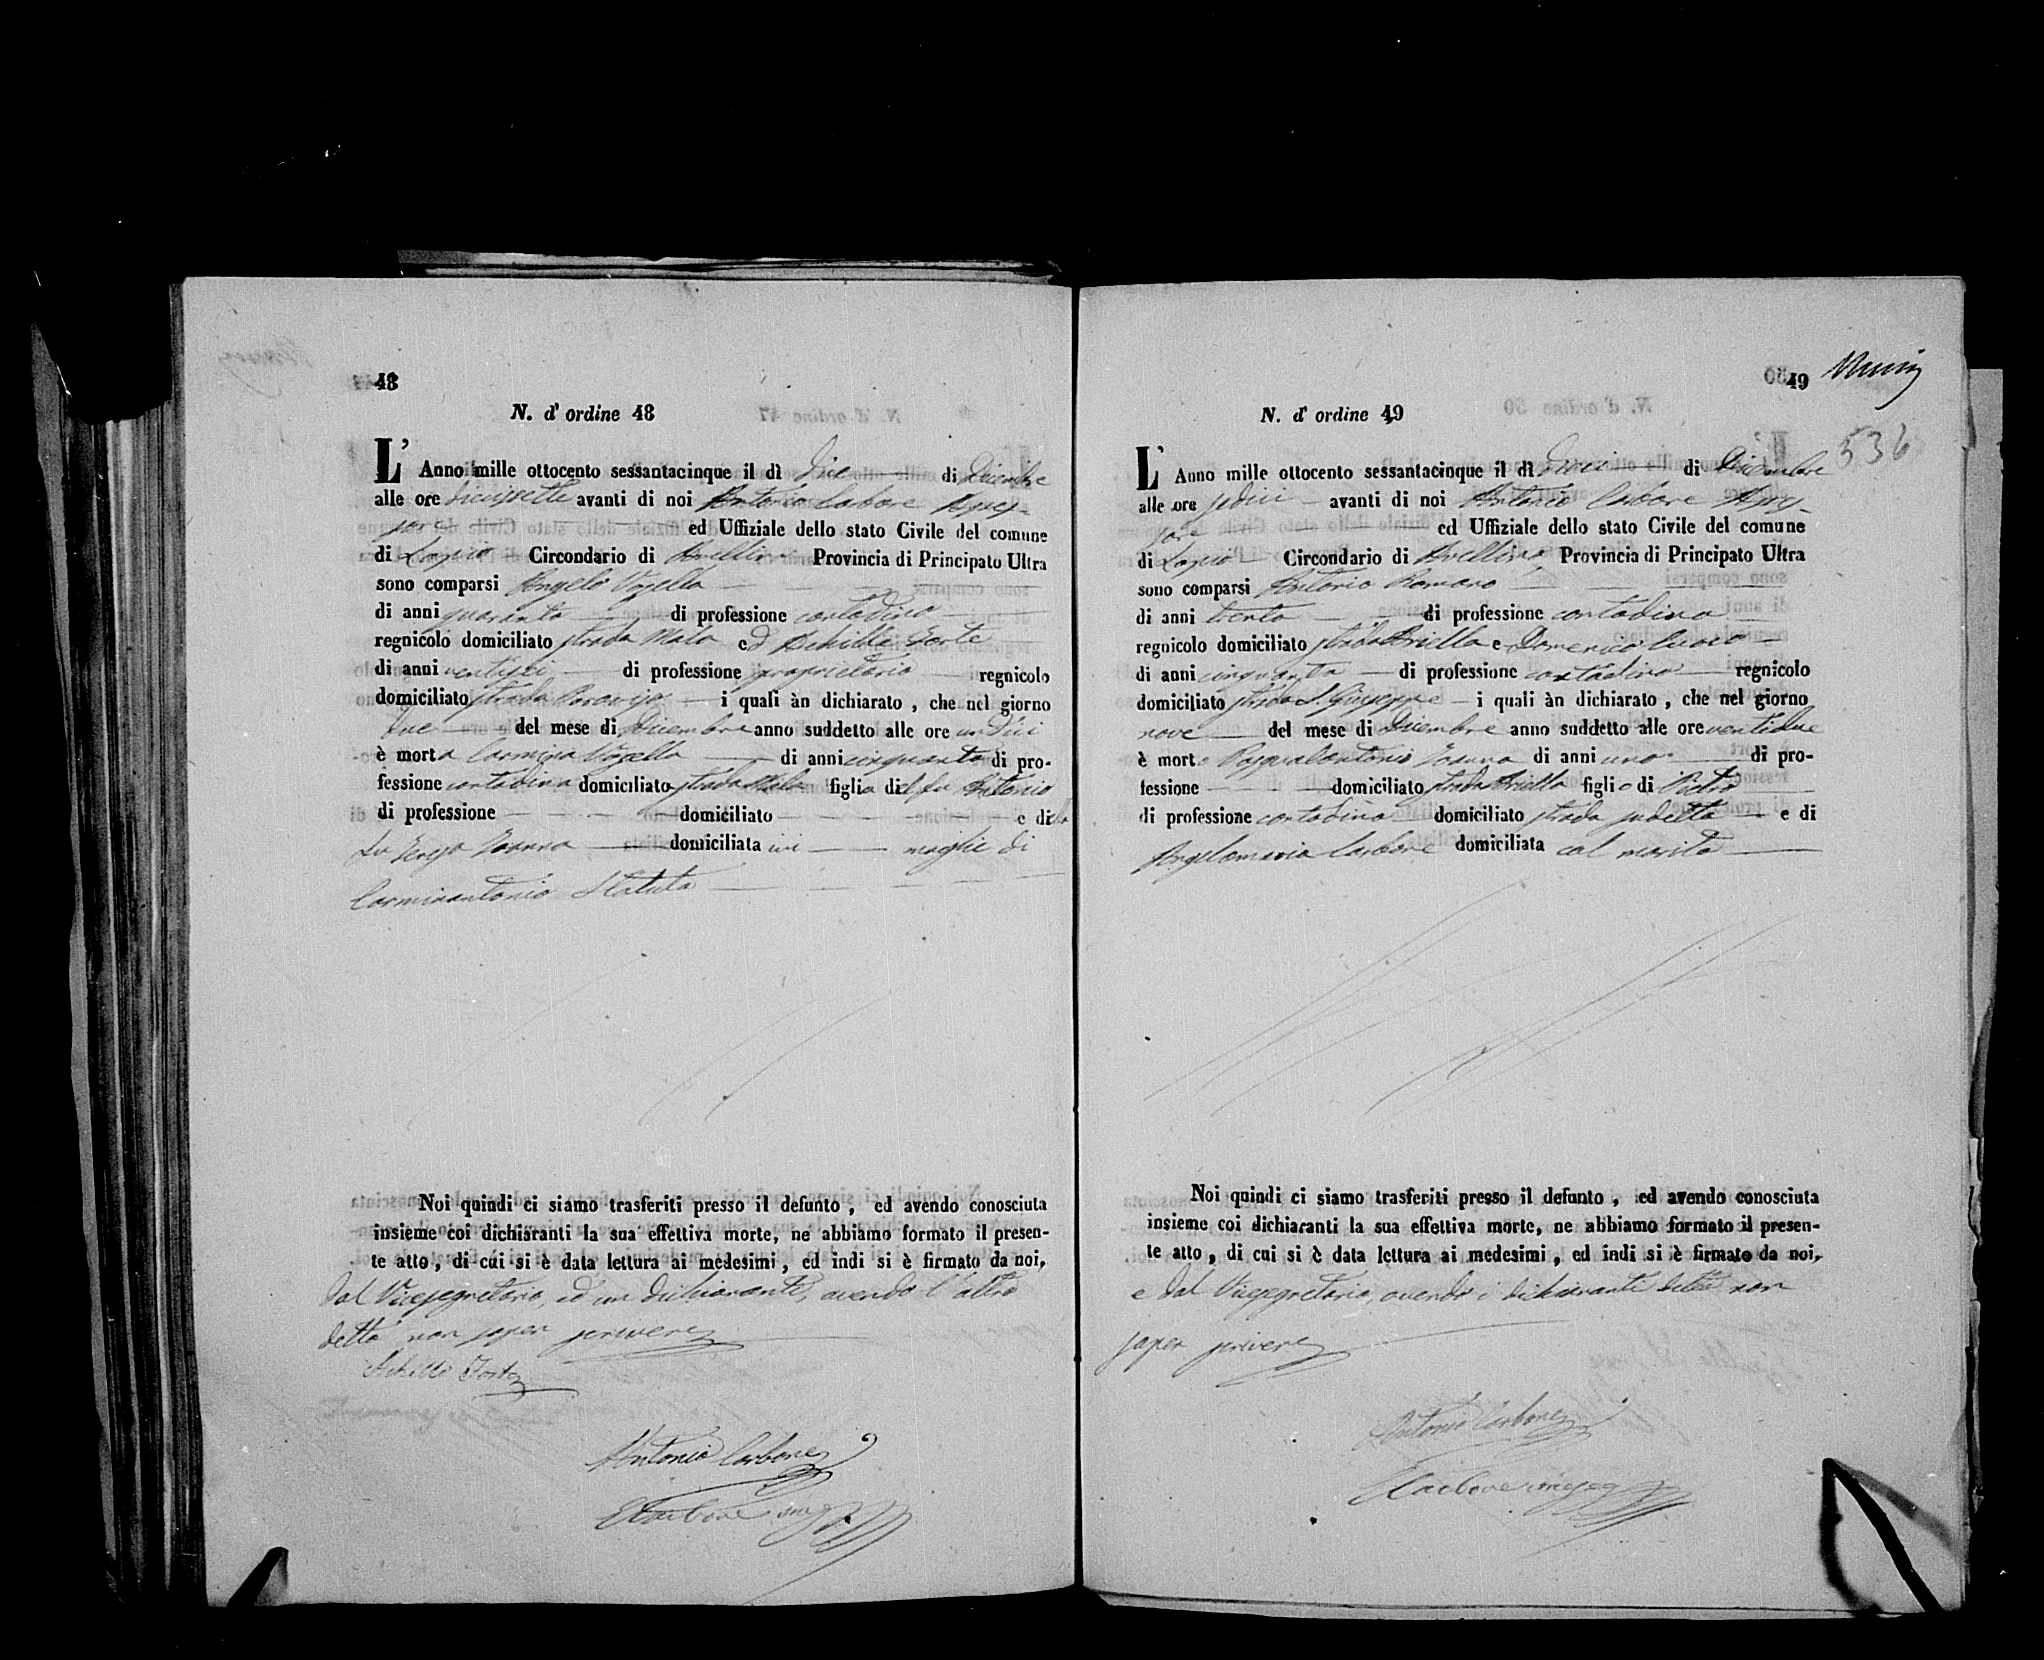 48
N. d' ordine 48
L' Anno mille ottocento sessantacinque il dì due di Dicembre
alle ore diecisette avanti di noi Antonio Carbone Asses-
sore ed Uffiziale dello stato Civile del comune
di Lapio Circondario di Avellino Provincia di Principato Ultra
sono comparsi Angelo
di anni quaranta di professione contadino
regnicolo domiciliato strada Mala ed Achille Forte
di anni ventisei di professione proprietario regnicolo
domiciliato strada i quali àn dichiarato , che nel giorno
due del mese di Dicembre anno suddetto alle ore undici
è morta Carmina di anni cinquanta di pro-
fessione contadina domiciliato strada Mala figlia del fu Antonio
di professione domiciliato e di
fu Teresa domiciliata ivi moglie di
Carminantonio Statuto
Noi quindi ci siamo trasferiti presso il defunto , ed avendo conosciuta
insieme coi dichiaranti la sua effettiva morte, ne abbiamo formato il presen-
te atto , di cui si è data lettura ai medesimi , ed indi si è firmato da noi,
dal Vicesegretario, ed un dichiarante, avendo l'altro
detto non saper scrivere
Achille Forte
Antonio Carbone
Carbone
49
536
N. d' ordine 49
L' Anno mille ottocento sessantacinque il dì dieci di Dicembre
alle ore sedici avanti di noi Antonio Carbone Asses-
sore ed Uffiziale dello stato Civile del comune
di Lapio Circondario di Avellino Provincia di Principato Ultra
sono comparsi Antonio Romano
di anni trenta di professione contadino
regnicolo domiciliato strada Ariella e Domenico
di anni cinquanta di professione contadino regnicolo
domiciliato strada S. Giuseppe i quali àn dichiarato , che nel giorno
nove del mese di Dicembre anno suddetto alle ore ventidue
è morto Pasqualantonio di anni uno di pro-
fessione domiciliato strada Ariella figlio di Pietro
di professione contadino domiciliato strada sudetta e di
Angelamaria Carbone domiciliata col marito
Noi quindi ci siamo trasferiti presso il defunto , ed avendo conosciuta
insieme coi dichiaranti la sua effettiva morte, ne abbiamo formato il presen-
te atto , di cui si è data lettura ai medesimi , ed indi si è firmato da noi,
e dal Vicesegretario, avendo i dichiaranti detto non
saper scrivere
Antonio Carbone
Carbone viceseg